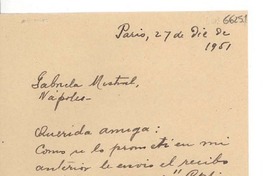 París, 27 de Dic de
1951
Gabriela Mistral,
Nápoles-
Querida amiga:
Como se lo prometí en mi
anterior le envío el recibo